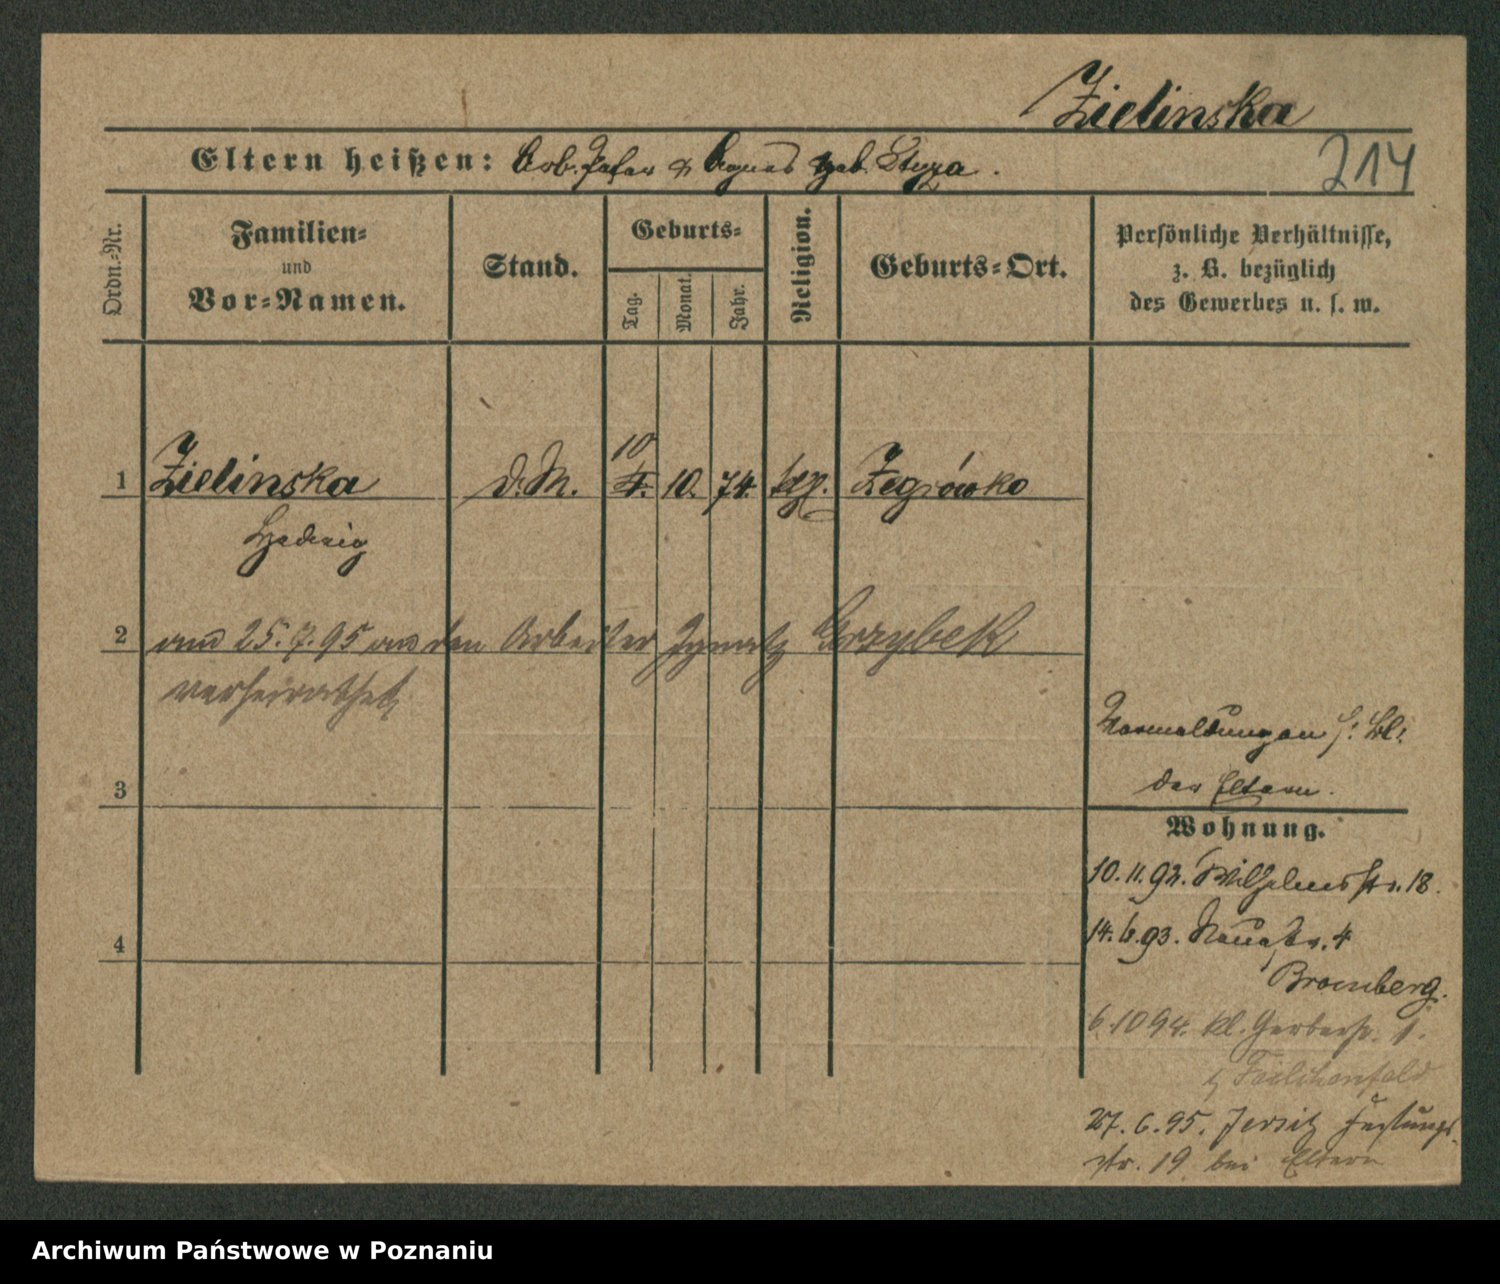 Zielinska
Eltern heißen: Arb. Peter & Agnes geb. Styza.
214
Ordn.-Nr.
Familien-
und
Vor-Namen.
Stand.
Geburts-
Tag.
Monat.
Jahr.
Religion.
Geburts-Ort.
Persönliche Verhältnisse,
z. B. bezüglich
des Gewerbes u. s. w.
10
1 Zielinska d. M. 10. 74. Zegrówko
Hedwig
2 am 25.7.95 an den Arbeiter Ignatz Grzybek
verheirathet
Vermeldungen s. Bl.
der Eltern.
3
Wohnung.
10.11.92. Wilhelmsstr. 18.
14.6.93. Neuestr. 4
4
Bromberg.
6.10 94. kl. Gerberstr. 1.
27.6.95. Jersitz Festungs-
str. 19 bei Eltern
Archiwum Państwowe w Poznaniu